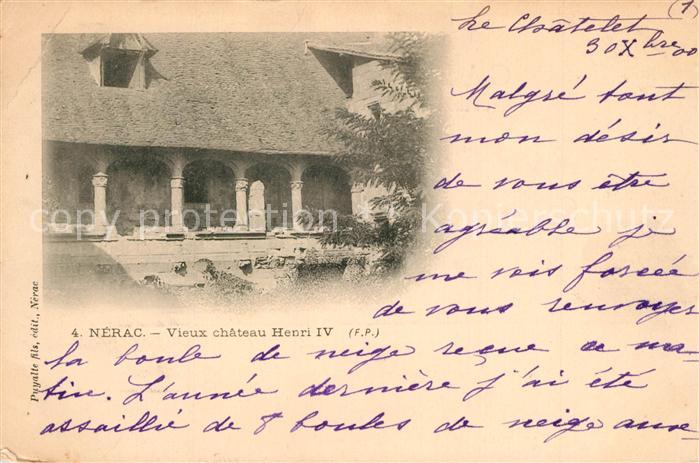 (1)
Le Châtelet
30 Xbre 00
Malgré tout
mon désir
de vous être
agréable je
me vois forcée
de vous renvoyer
la boule de neige reçue ce ma-
tin. L'année dernière j'ai été
assaillie de 8 boules de neige aux-
4. NÉRAC. — Vieux château Henri IV (F.P.)
Puyalte fils, édit., Nérac
copy protection Kopierschutz